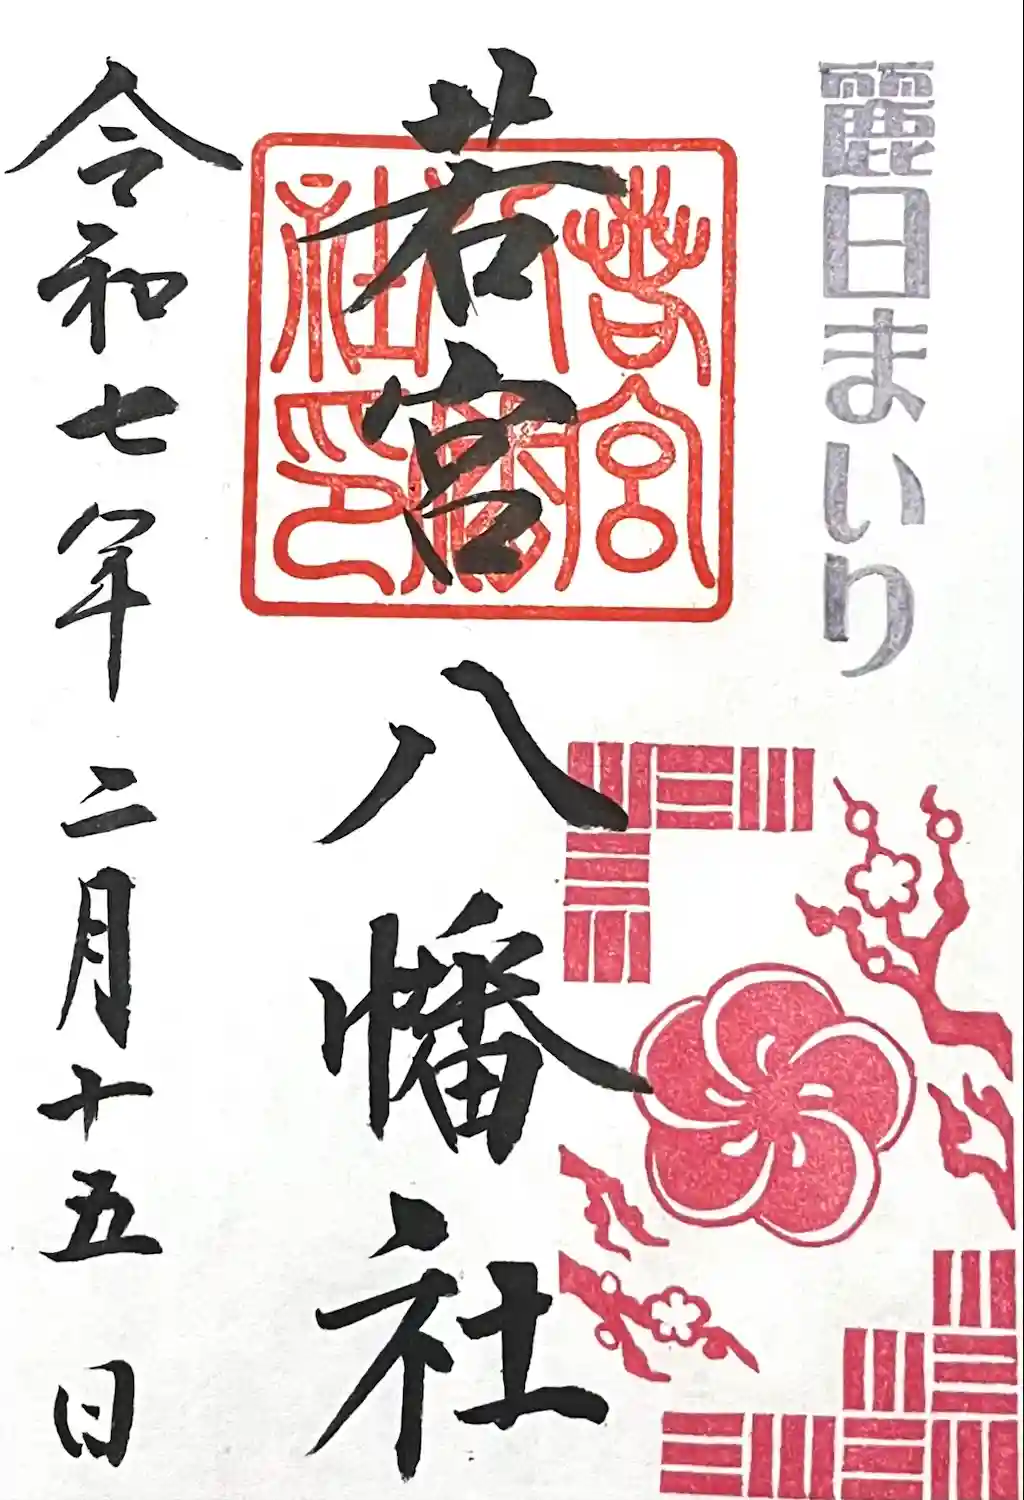 麗日まいり
若宮八幡社
若宮八幡社印
令和七年二月十五日